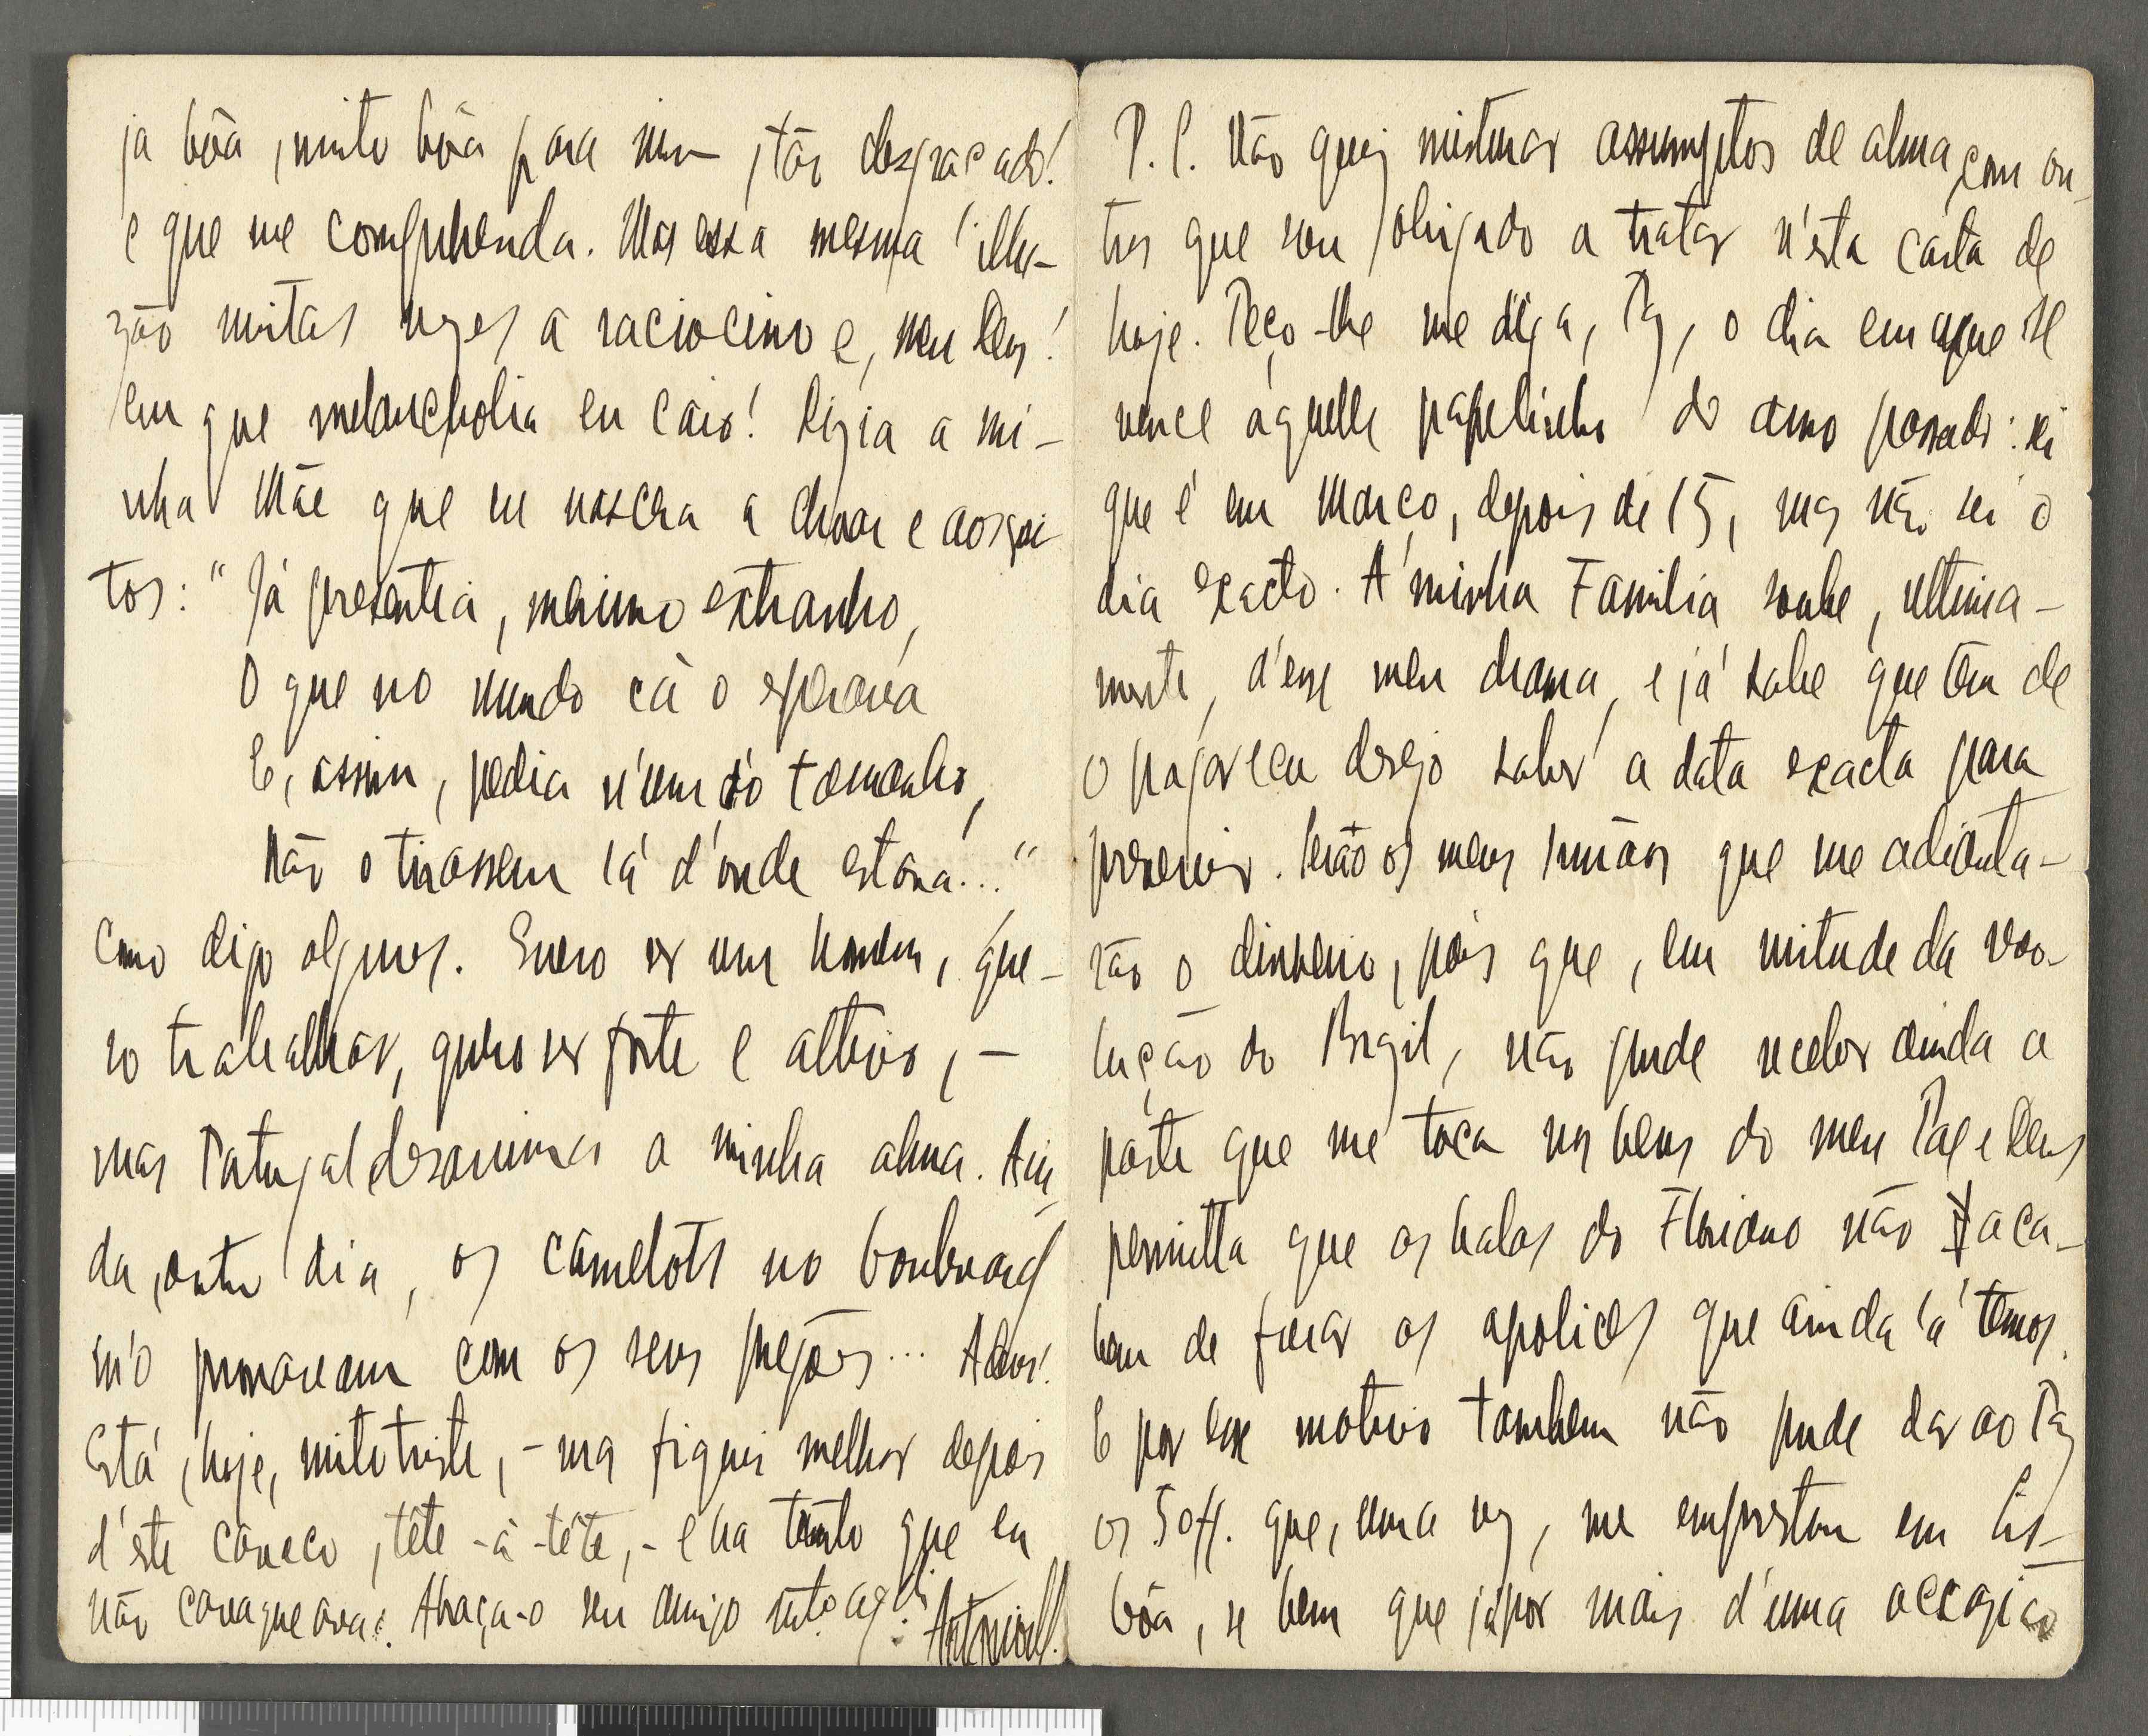 ja bôa, muito bôa para mim, tão desgraçado!
e que me comprehenda. Mas essa mesma illu-
zão muitas vezes a raciocino e, meu Deus!
em que melancholia eu caio! Dizia a mi-
nha Mãe que eu nascera a chorar e aos gri-
tos: "Já presentia, menino extranho,
O que no mundo cá o esperava
E, assim, pedia n'um dó tamanho,
Não o tirassem lá d'onde estava..."
Como digo algures. Quero ser um homem, que-
ro trabalhar, quero ser forte e altivo, -
mas Portugal desanima a minha alma. Ain
da, outro dia, os camelots no boulevard
m'o provavam com os seus pregões... Adeus!
Está, hoje, muito triste, - mas fiquei melhor depois
d'este cavaco, tête-à-tête, - e ha tanto que eu
não cavaqueava. Abraça-o seu amigo mto agdo: Antonio
P.S. Não quiz misturar assumptos de alma com ou-
tros que sou obrigado a tratar n'esta carta de
hoje. Peço-lhe me diga, Paz, o dia em que se
vence aquelle papelinho do anno passado: sei
que é em Março, depois de 15, mas não sei o
dia exacto. A minha Familia soube, ultima-
mente, d'esse meu drama, e já sabe que tem de
o pagar e eu desejo saber a data exacta para
prevenir. Serão os meus Irmãos que me adianta-
rão o dinheiro, pois que, em virtude da revo-
lução do Brazil, não pude receber ainda a
parte que me toca nos bens do meu Pae e Deus
permitta que as balas do Floriano não aca-
bem de furar as apolices que ainda lá temos.
E por esse motivo tambem não pude dar ao Paz
os 50 ff. que, uma vez, me emprestou em Lis-
bôa, se bem que já por mais d'uma occazião